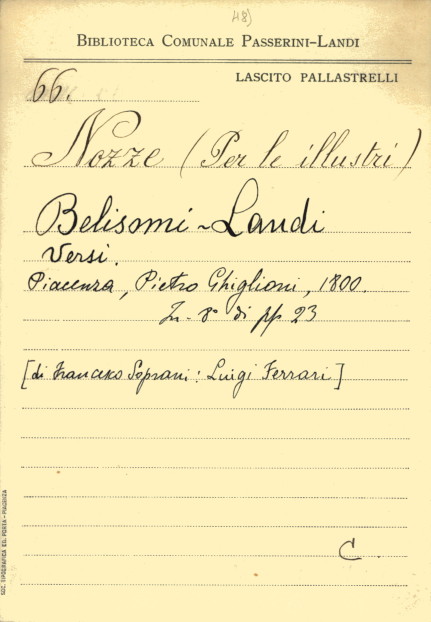 48)
BIBLIOTECA COMUNALE PASSERINI-LANDI
LASCITO PALLASTRELLI
66.
Nozze (Per le illustri)
Belisomi-Landi
Versi.
Piacenza, Pietro Ghiglioni, 1800.
In-8° di pp 23
[di Francesco Soprani: Luigi Ferrari]
C.
SOC. TIPOGRAFICA ED. PORTA - PIACENZA